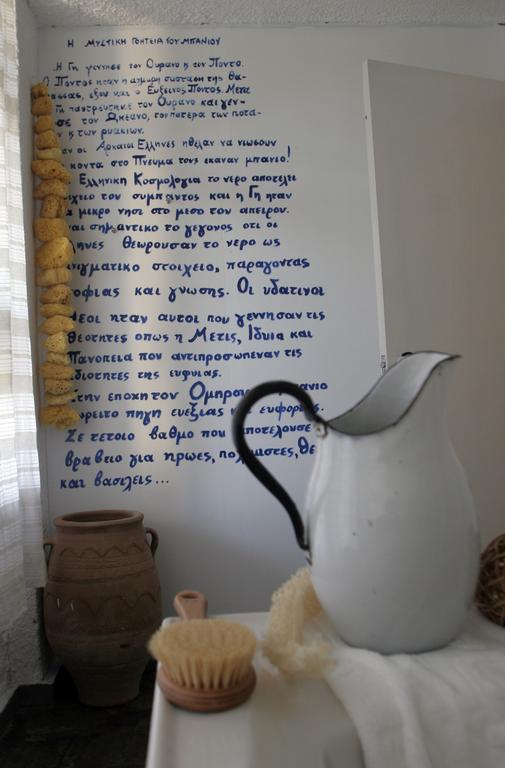 Η ΜΥΣΤΙΚΗ ΓΟΗΤΕΙΑ ΤΟΥ ΜΠΑΝΙΟΥ
Η Γη γεννησε τον Ουρανο κ τον Ποντο.
Ο Ποντος ηταν η αλμυρη συσταση της θα-
ασσας, εξου και ο Ευξεινος Ποντος. Μετα
Γη παντρευτηκε τον Ουρανο και γεν-
σε τον Ωκεανο, τον πατερα των ποτα-
ν κ των ρυακιων.
αν οι Αρχαιοι Ελληνες ηθελαν να νιωσουν
κοντα στο Πνευμα τους εκαναν μπανιο!
Ελληνικη Κοσμολογια το νερο αποτελει
ιχειο του συμπαντος και η Γη ηταν
μικρο νησι στο μεσο του απειρου.
ναι σημαντικο το γεγονος οτι οι
ηνες θεωρουσαν το νερο ως
νιγματικο στοιχειο, παραγοντας
οφιας και γνωσης. Οι υδατινοι
θεοι ηταν αυτοι που γεννησαν τις
θεοτητες οπως η Μετις, Ιδυια και
Πανοπεια που αντιπροσωπευαν τις
διοτητες της ευφυιας.
την εποχη του Ομηρου μπανιο
ωρειτο πηγη ευεξιας κ ευφοριας.
Σε τετοιο βαθμο που αποτελουσε
βραβειο για ηρωες, πολεμιστες, θε
και βασιλεις...